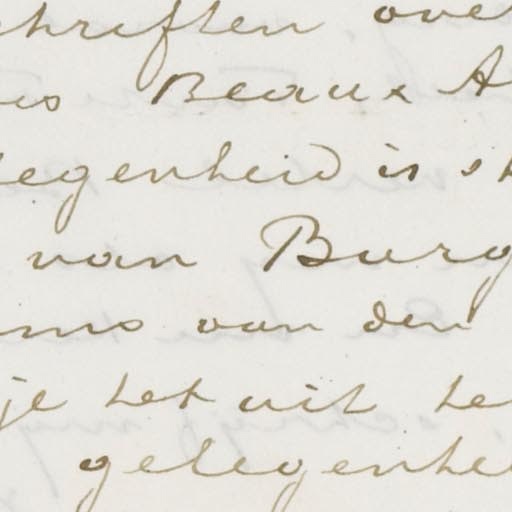 chriften over
es Beaux A
legenheid is sk
van Burg
ms van den
je het uit te
gelegenhei